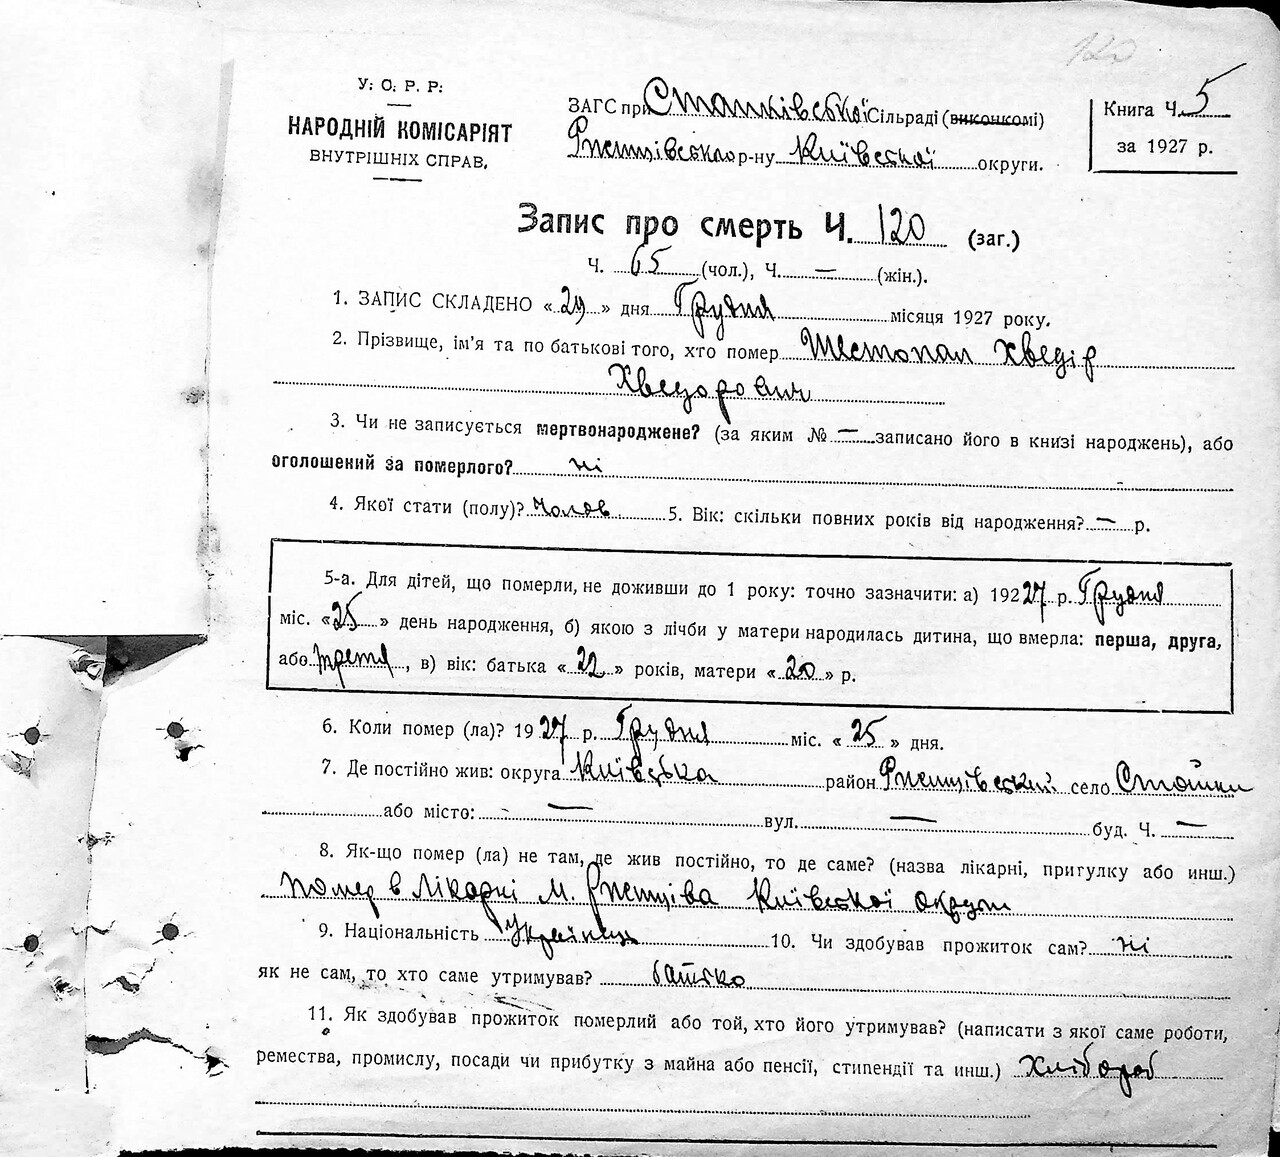 120
У. С. Р. Р.
НАРОДНІЙ КОМІСАРІЯТ
ВНУТРІШНІХ СПРАВ.
ЗАГС при Стайківської Сільраді (виконкомі)
Ржищівського р-ну Київської округи.
Книга Ч. 5
за 1927 р.
Запис про смерть Ч. 120 (заг.)
Ч. 65 (чол.), Ч. — (жін.).
1. ЗАПИС СКЛАДЕНО « 29 » дня Грудня місяця 1927 року.
2. Прізвище, ім'я та по батькові того, хто помер Шестопал Хведір
Хведорович
3. Чи не записується мертвонароджене? (за яким № — записано його в книзі народжень), або
оголошений за померлого? ні
4. Якої стати (полу)? Чолов. 5. Вік: скільки повних років від народження? — р.
5-а. Для дітей, що померли, не доживши до 1 року: точно зазначити: а) 1927 р. Грудня
міс. « 25 » день народження, б) якою з лічби у матери народилась дитина, що вмерла: перша, друга,
або третя, в) вік: батька « 22 » років, матери « 20 » р.
6. Коли помер (ла)? 1927 р. Грудня міс. « 25 » дня.
7. Де постійно жив: округа Київська район Ржищівський село Стайки
або місто: — вул. — буд. Ч. —
8. Як-що помер (ла) не там, де жив постійно, то де саме? (назва лікарні, пригулку або инш.)
помер в лікарні м. Ржищіва Київської округи
9. Національність Українець 10. Чи здобував прожиток сам? ні
як не сам, то хто саме утримував? батько
11. Як здобував прожиток померлий або той, хто його утримував? (написати з якої саме роботи,
ремества, промислу, посади чи прибутку з майна або пенсії, стипендії та инш.) Хлібороб